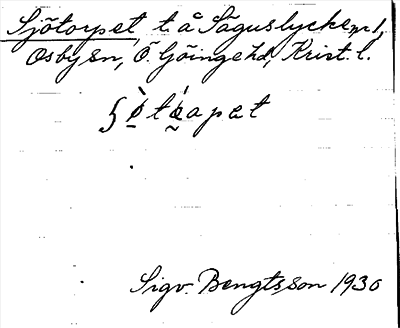 Sjötorpet, t. å Såguslycke m1,
Osby sn, Ö. Göinge hd, Krist. l.
ʃø̀tápat
Sigv. Bengtsson 1930